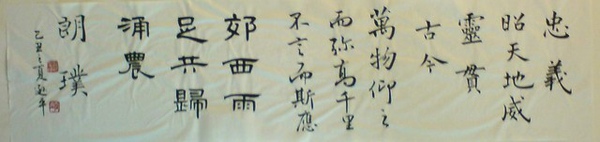 忠義
昭天地威
靈貫
古今
萬物仰之
而弥高千里
不言而斯應
郊西雨
足共歸
涌農
朗璞
己丑之夏